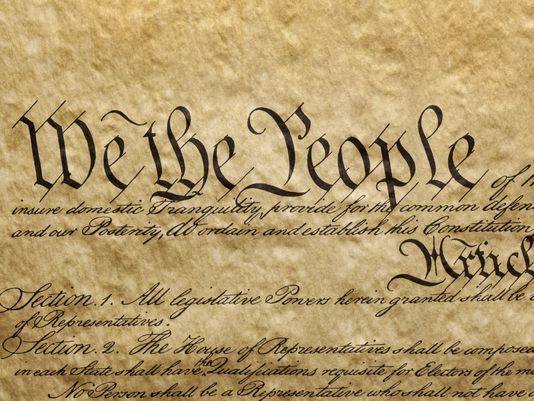 We the People of th
insure domestic Tranquility, provide for the common defen
and our Posterity, do ordain and establish this Constitution
Articl
Section. 1. All legislative Powers herein granted shall be
of Representatives.
Section. 2. The House of Representatives shall be compose
in each State shall have the Qualifications requisite for Electors of the m
No Person shall be a Representative who shall not have